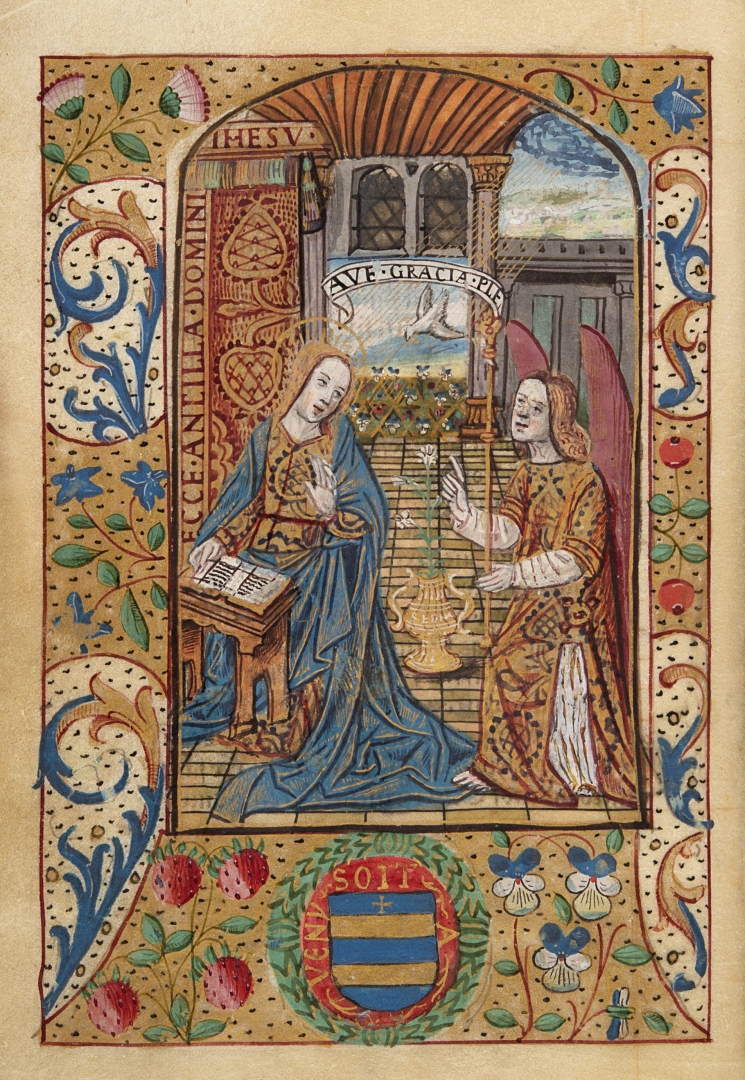 IHESV·
ECCE·ANCILLA·DOMINI
AVE·GRACIA·PLE
SOIT